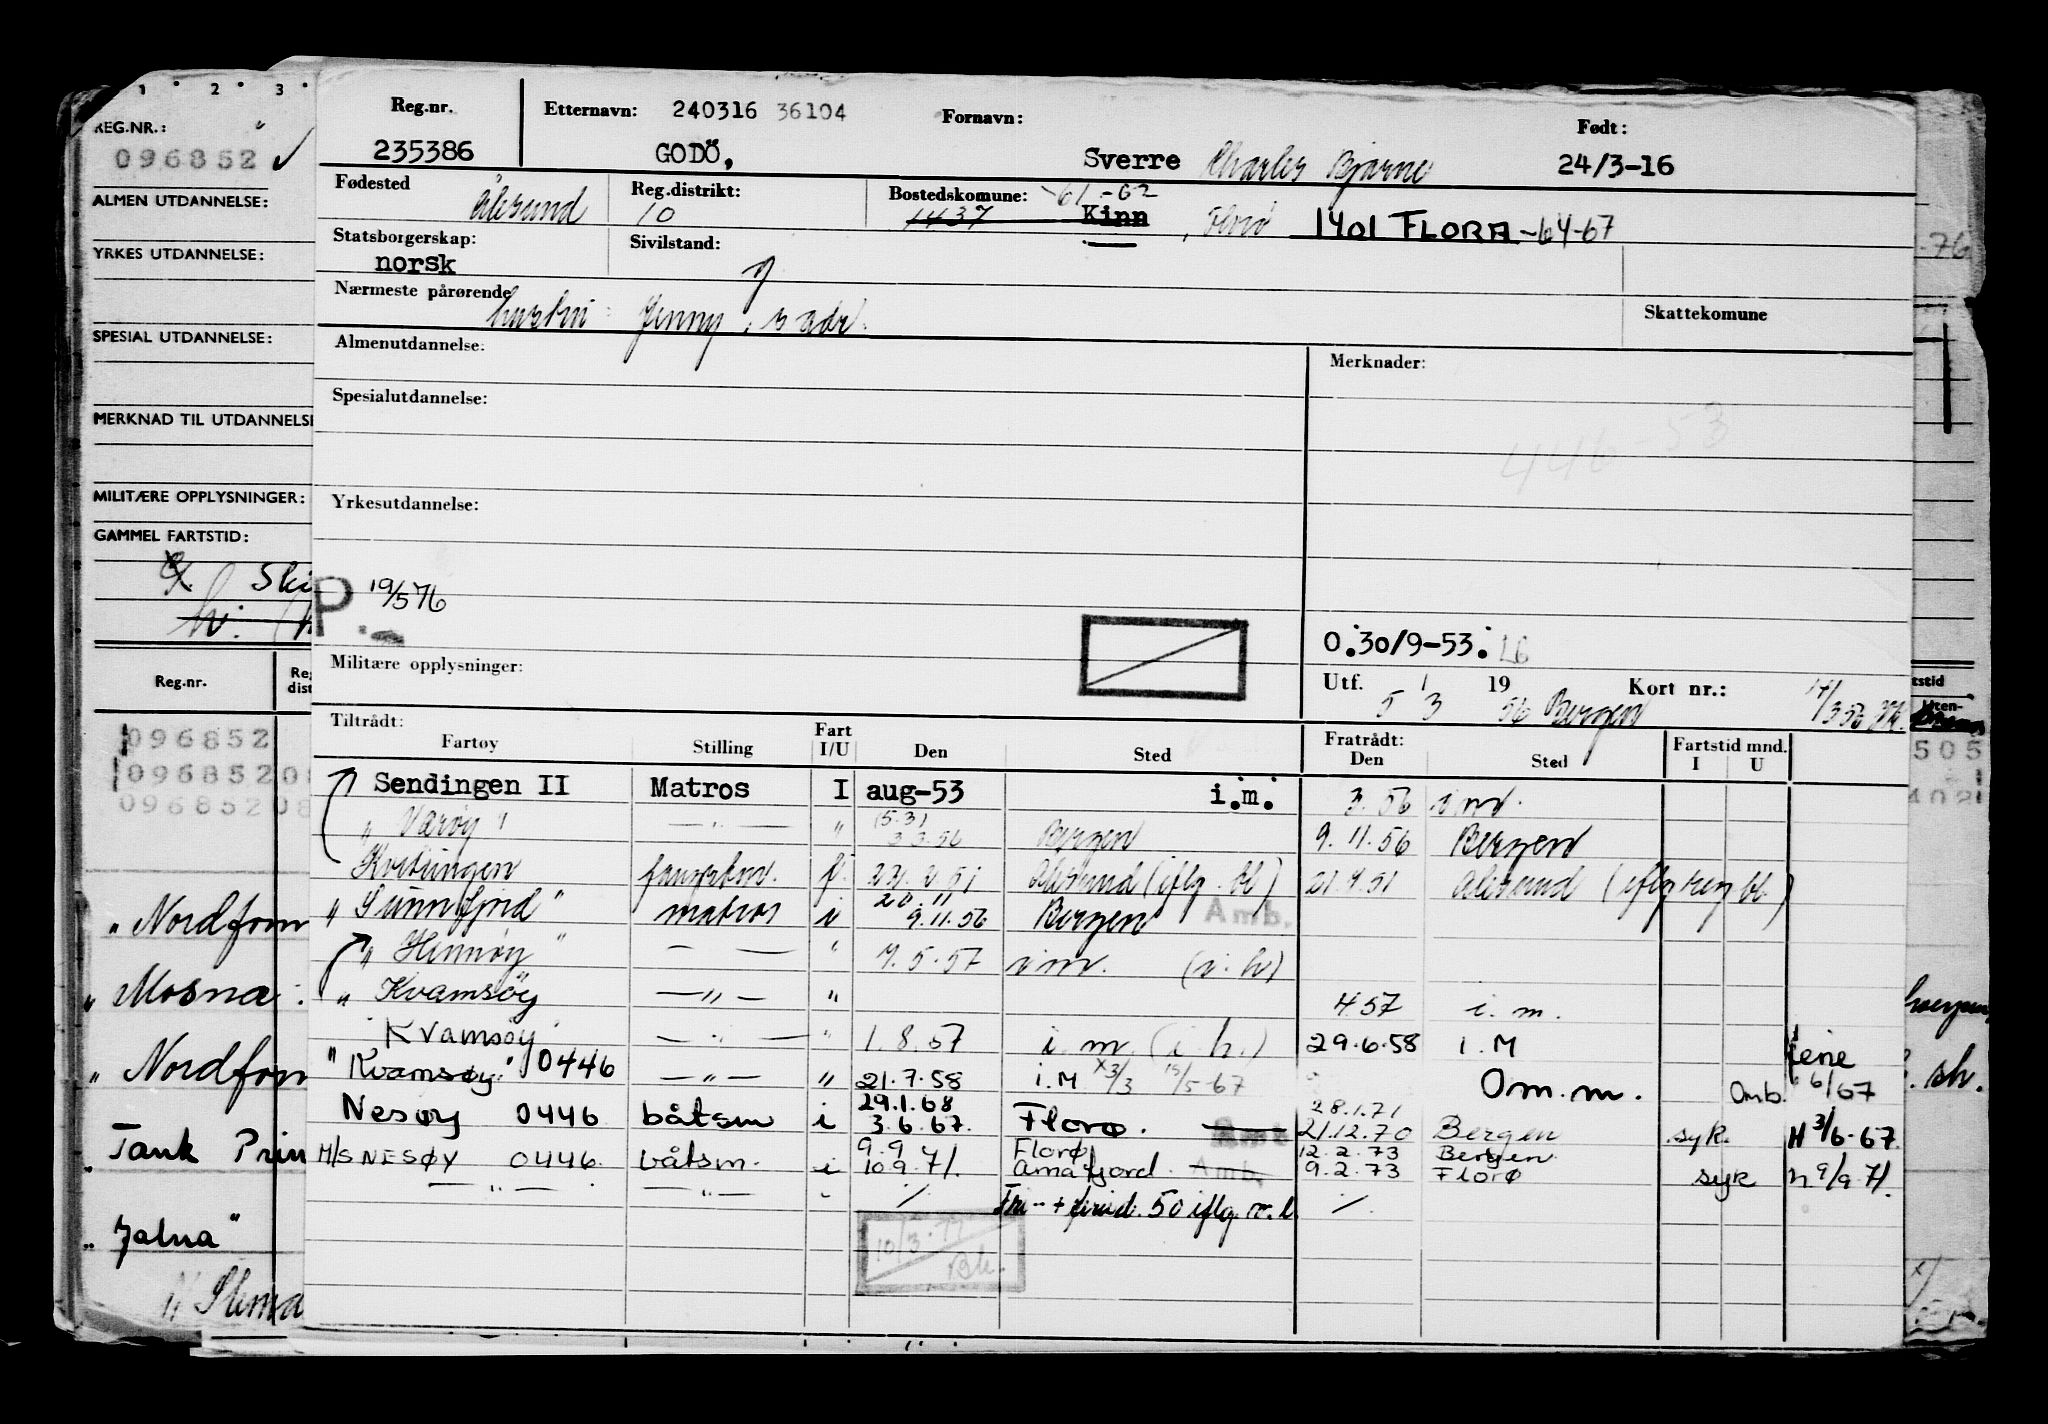 Reg.nr.
235386
Etternavn: 240316 36104
GODÖ,
Fornavn:
Sverre Charles Bjarne
Født:
24/3-16
Fødested
Ålesund
Reg.distrikt:
10
Bostedskomune: -61-62
1437 Kinn, Florø 1401 FLORA -64-67
Statsborgerskap:
norsk
Sivilstand:
g
Nærmeste pårørende
hustru: Jenny, s adr.
Skattekomune
Almenutdannelse:
Merknader:
446-53
Spesialutdannelse:
Yrkesutdannelse:
P. 19/5 76
Militære opplysninger:
0.30/9-53.
Utf. 5 / 3 19 56 Bergen Kort nr.:
Tiltrådt:
Fartøy Stilling Fart I/U Den Sted
Fratrådt:
Den Sted
Fartstid mnd.
I U
Sendingen II Matros I aug-53 i.m. 3. 56 i.m.
" Værøy " — " — " (5.3) 3.3.56 Bergen 9.11.56 Bergen
Kvitungen f. 22. 2 51 Ålesund (iflg. bl) 21.4.51 Ålesund (iflg reg bl.)
" Sunnfjord " matros i 20.11 9.11.56 Bergen Amb.
" Hinnøy " — — " 7.5.57 i m. (i.h)
" Kvamsøy — " — " 4.57 i. m.
Kvamsøy — " — " 1.8.57 i. m. (i.h.) 29.6.58 I.M
" Kvamsøy " 0446 — " — " 21.7.58 i.M x 3/3 15/5-67 Om.m. Omb. 6/67
Nesøy 0446 båtsm i 29.1.68 3.6.67. Florø. Amb 28.1.71 21.12.70 Bergen syk. H 3/6-67.
M/S NESØY 0446. båtsm. i 9.9 10.9.71. Florø Amb. 12.2.73 9.2.73 Bergen Florø syk 9/9-71.
— " — — " — " iflg.
10/3-77
1 2 3
REG.NR.:
096852
ALMEN UTDANNELSE:
YRKES UTDANNELSE:
SPESIAL UTDANNELSE:
MERKNAD TIL UTDANNELSE
MILITÆRE OPPLYSNINGER:
GAMMEL FARTSTID:
Ski
Reg.nr.
Reg
dist
096852
096852 08
096852 08
" Nordfom
" Mosna
" Nordfom
" Tank Prin
" Jalna "
-76
tstid
Uten-
505
402
sh.